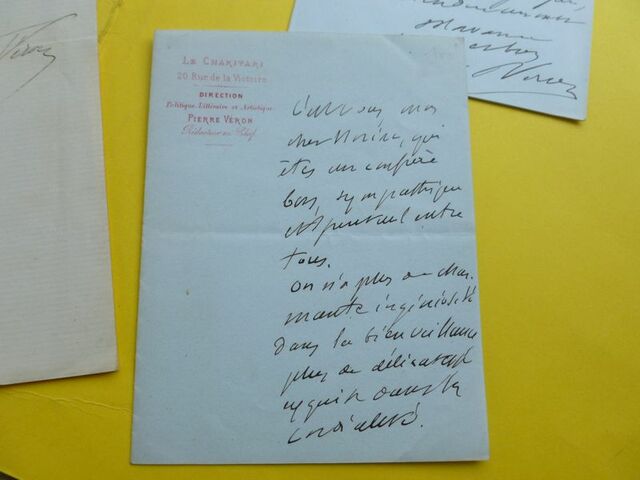 Le Charivari
20 Rue de la Victoire
DIRECTION
Politique, Littéraire et Artistique
PIERRE VÉRON
Rédacteur en Chef
C'est vous mon
cher qui
êtes un confrère
bon, sympathique
et entre
tous.
On n'a plus de char-
mante ingéniosité
dans la bienveillance
plus de délicatesse
exquise dans la
cordialité.
Véron